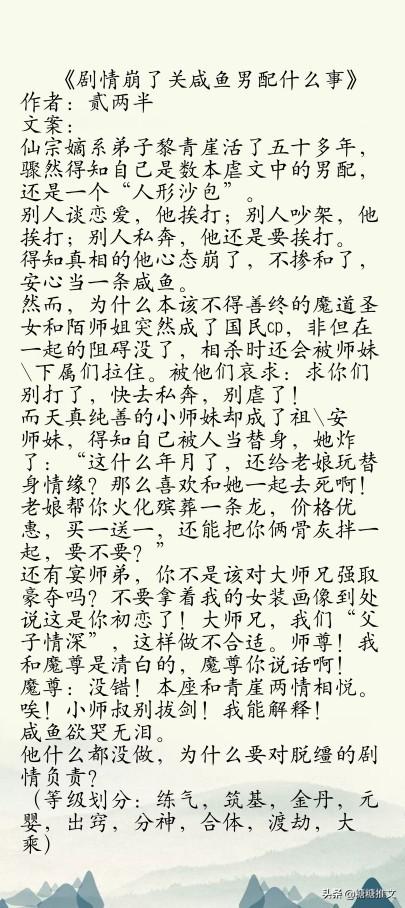 《剧情崩了关咸鱼男配什么事》
作者：贰两半
文案：
仙宗嫡系弟子黎青崖活了五十多年，
骤然得知自己是数本虐文中的男配，
还是一个“人形沙包”。
别人谈恋爱，他挨打；别人吵架，他
挨打；别人私奔，他还是要挨打。
得知真相的他心态崩了，不掺和了，
安心当一条咸鱼。
然而，为什么本该不得善终的魔道圣
女和陌师姐突然成了国民cp，非但在
一起的阻碍没了，相杀时还会被师妹
\下属们拉住。被他们哀求：求你们
别打了，快去私奔，别虐了！
而天真纯善的小师妹却成了祖\安
师妹，得知自己被人当替身，她炸
了：“这什么年月了，还给老娘玩替
身情缘？那么喜欢和她一起去死啊！
老娘帮你火化殡葬一条龙，价格优
惠，买一送一，还能把你俩骨灰拌一
起，要不要？”
还有宴师弟，你不是该对大师兄强取
豪夺吗？不要拿着我的女装画像到处
说这是你初恋了！大师兄，我们“父
子情深”，这样做不合适。师尊！我
和魔尊是清白的，魔尊你说话啊！
魔尊：没错！本座和青崖两情相悦。
唉！小师叔别拔剑！我能解释！
咸鱼欲哭无泪。
他什么都没做，为什么要对脱缰的剧
情负责？
（等级划分：练气，筑基，金丹，元
婴，出窍，分神，合体，渡劫，大
乘）
头条 @糖糖推文